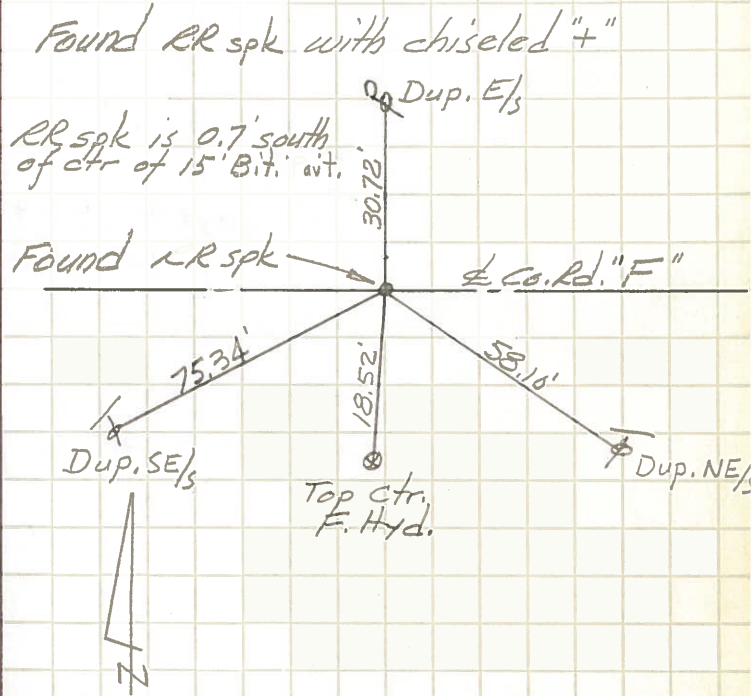 Found RR spk with chiseled "+"
Dup. E/s
RR spk is 0.7' south
of ctr of 15' Bit.
30.72'
Found RR spk
℄ Co. Rd. "F"
75.34'
18.52'
58.10'
Dup. SE/s
Top Ctr.
F. Hyd.
Dup. NE/s
N